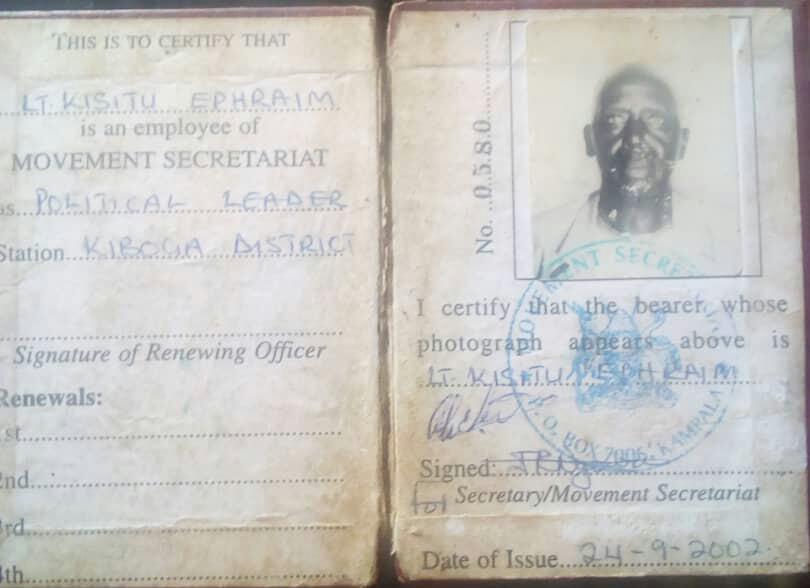 THIS IS TO CERTIFY THAT
LT. KISITU EPHRAIM
is an employee of
MOVEMENT SECRETARIAT
as POLITICAL LEADER
Station KIBOGA DISTRICT
Signature of Renewing Officer
Renewals:
1st
2nd
3rd
4th
No. 0580
I certify that the bearer whose
photograph appears above is
LT. KISITU EPHRAIM
Signed:
for Secretary/Movement Secretariat
Date of Issue 24-9-2002
MOVEMENT SECRETARIAT
P. O. BOX 7006, KAMPALA